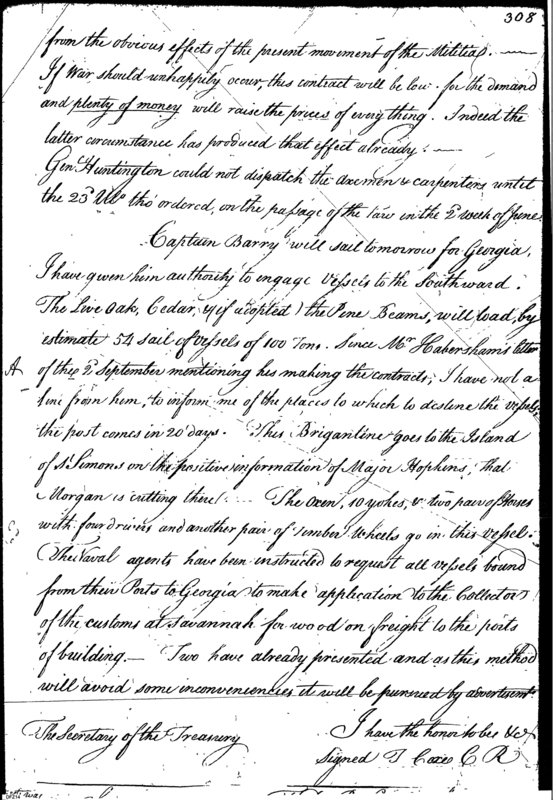 308
from the obvious effects of the present movement of the Militias. —
If War should unhappily occur, this contract will be low. for the demand
and plenty of money will raise the prices of every thing. Indeed the
latter circumstance has produced that effect already. —
Genl. Huntington could not dispatch the axemen & carpenters until
the 23d Ulto. tho' ordered, on the passage of the law in the 2d week of June.
Captain Barry will sail tomorrow for Georgia.
I have given him authority to engage Vessels to the Southward.
The Live Oak, Cedar, & (if adopted) the Pine Beams, will load, by
estimate 54 sail of Vessels of 100 Tons. Since Mr. Habersham's letter
A
of the 2d September mentioning his making the contracts, I have not a
line from him, to inform me of the places to which to destine the Vessels,
the post comes in 20 days. This Brigantine goes to the Island
of St. Simons on the positive information of Major Hopkins, that
Morgan is cutting there. The Oxen, 10 yokes, & two pair of Horses
with four drivers and another pair of timber Wheels go in this vessel.
The Naval agents have been instructed to request all vessels bound
from their Ports to Georgia to make application to the Collector
of the customs at Savannah for wood on freight to the ports
of building. — Two have already presented and as this method
will avoid some inconveniencies it will be pursued by advertisemt.
The Secretary of the Treasury
I have the honor to be &c
Signed T Coxe C R